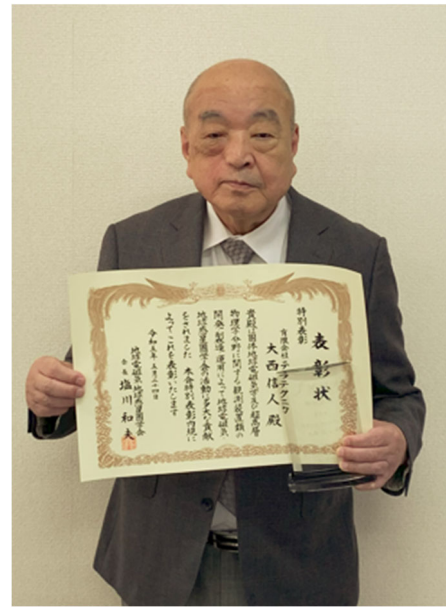 表彰状
特別表彰
有限会社テラテクニカ
大西信人殿
貴殿は固体地球電磁気学及び超高層
物理学分野に関する観測装置類の
開発・製造・運用によって地球電磁気
地球惑星圏学会の活動に多大な貢献
をされました 本会特別表彰内規に
よってこれを表彰いたします
令和五年五月二十一日
地球電磁気・地球惑星圏学会
会長 塩川和夫